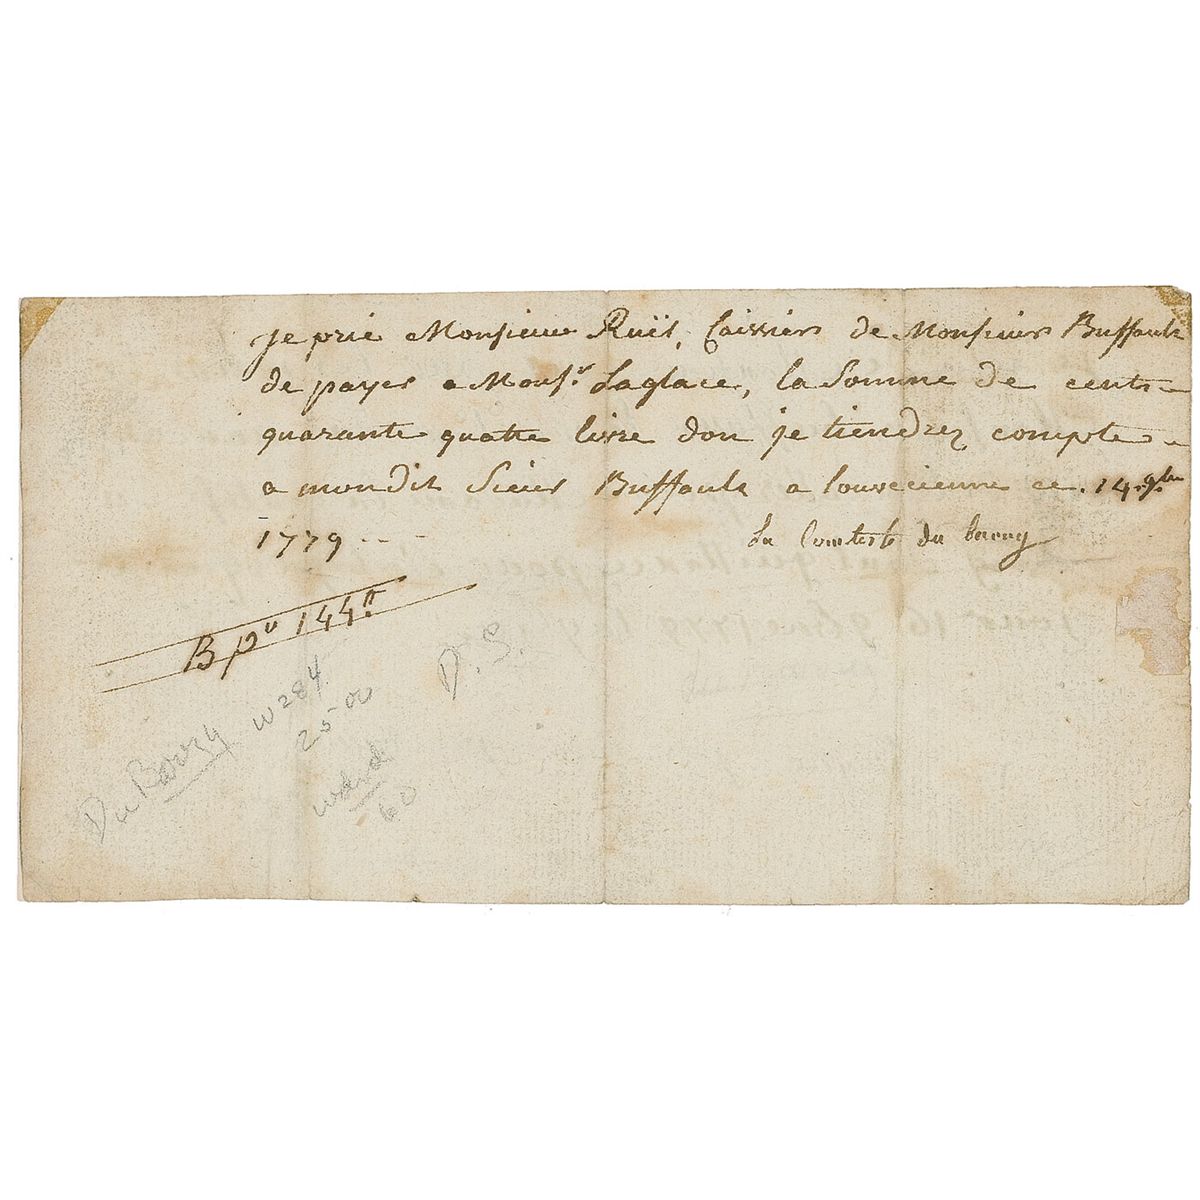 je prie Monsieur Ruïs, Caissiers de Monsieurs Buffault
de payer a Monsr. Laglace, la Somme de cents
quarante quatre livre don je tiendrez compte
a mondit Sieurs Buffault a Louvecienne ce. 14. 9bre
1779
La Comtesse du barry
B pu 144tt
D. S.
Du Barry W284
25 00
60